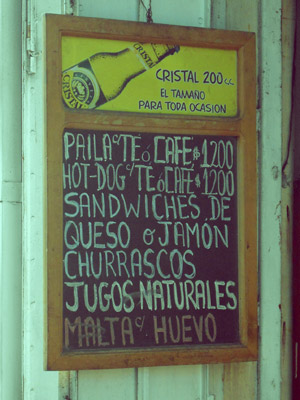 CRISTAL
CRISTAL 200 cc
EL TAMAÑO
PARA TODA OCASION
PAILA c/ TE ó CAFE $1200
HOT-DOG c/ TE ó CAFE $1200
SANDWICHES DE
QUESO o JAMÓN
CHURRASCOS
JUGOS NATURALES
MALTA c/ HUEVO